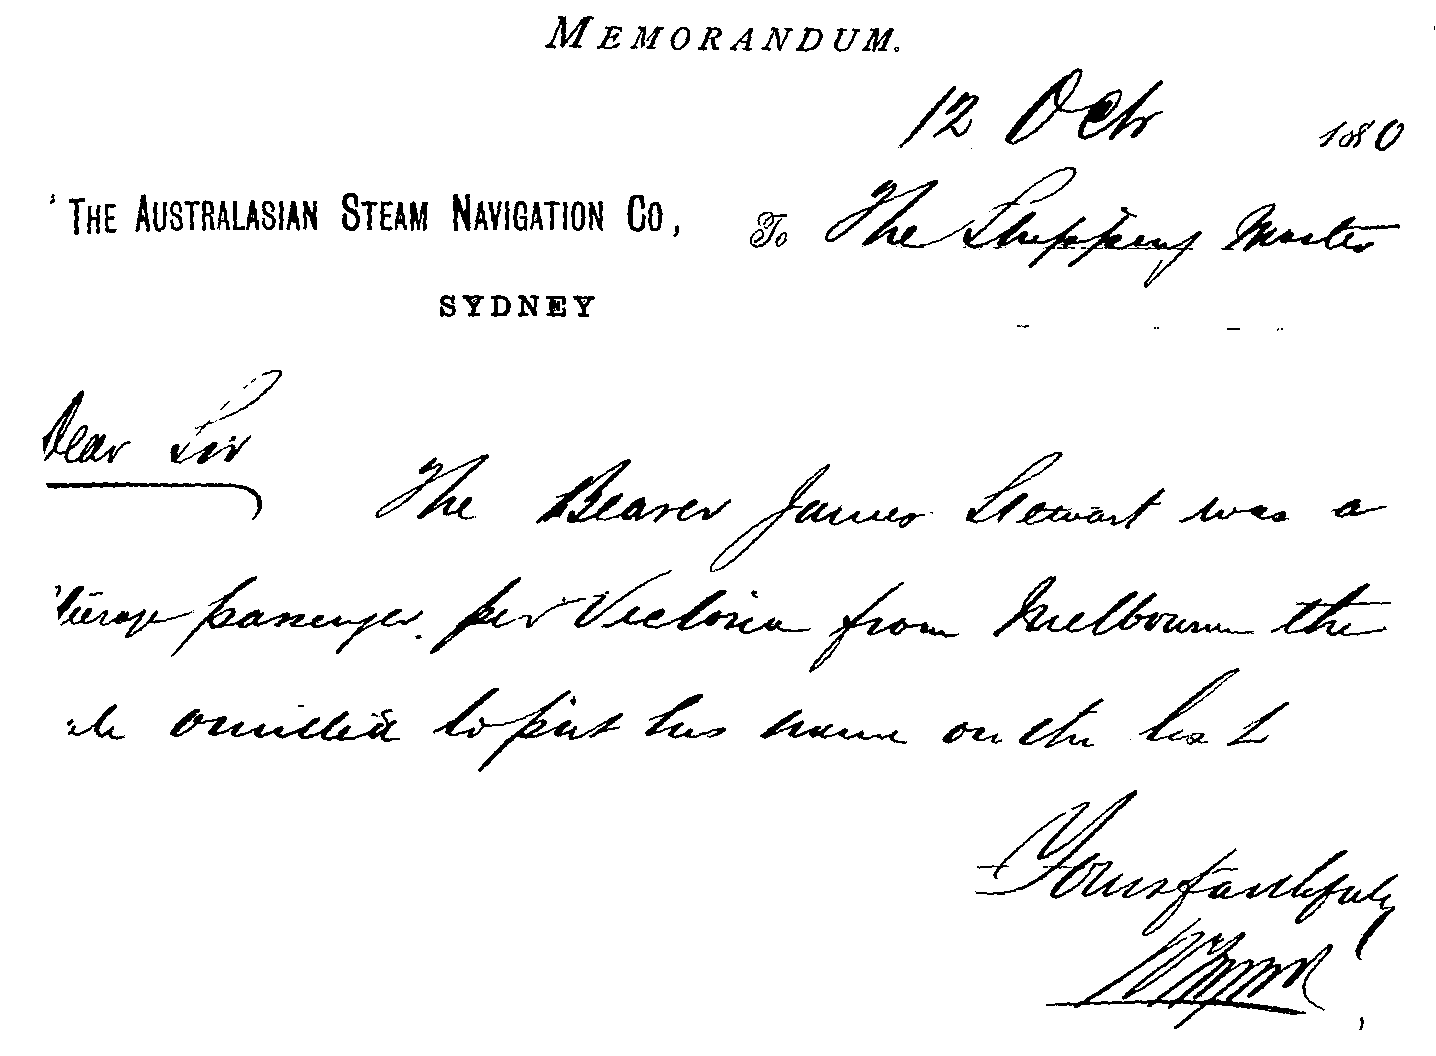 MEMORANDUM.
12 Octr 1880
THE AUSTRALASIAN STEAM NAVIGATION CO,
To The Shipping Master
SYDNEY
Dear Sir
The Bearer James Stewart was a
passenger per Victoria from Melbourne the
omitted to put his name on the list
Yours faithfully